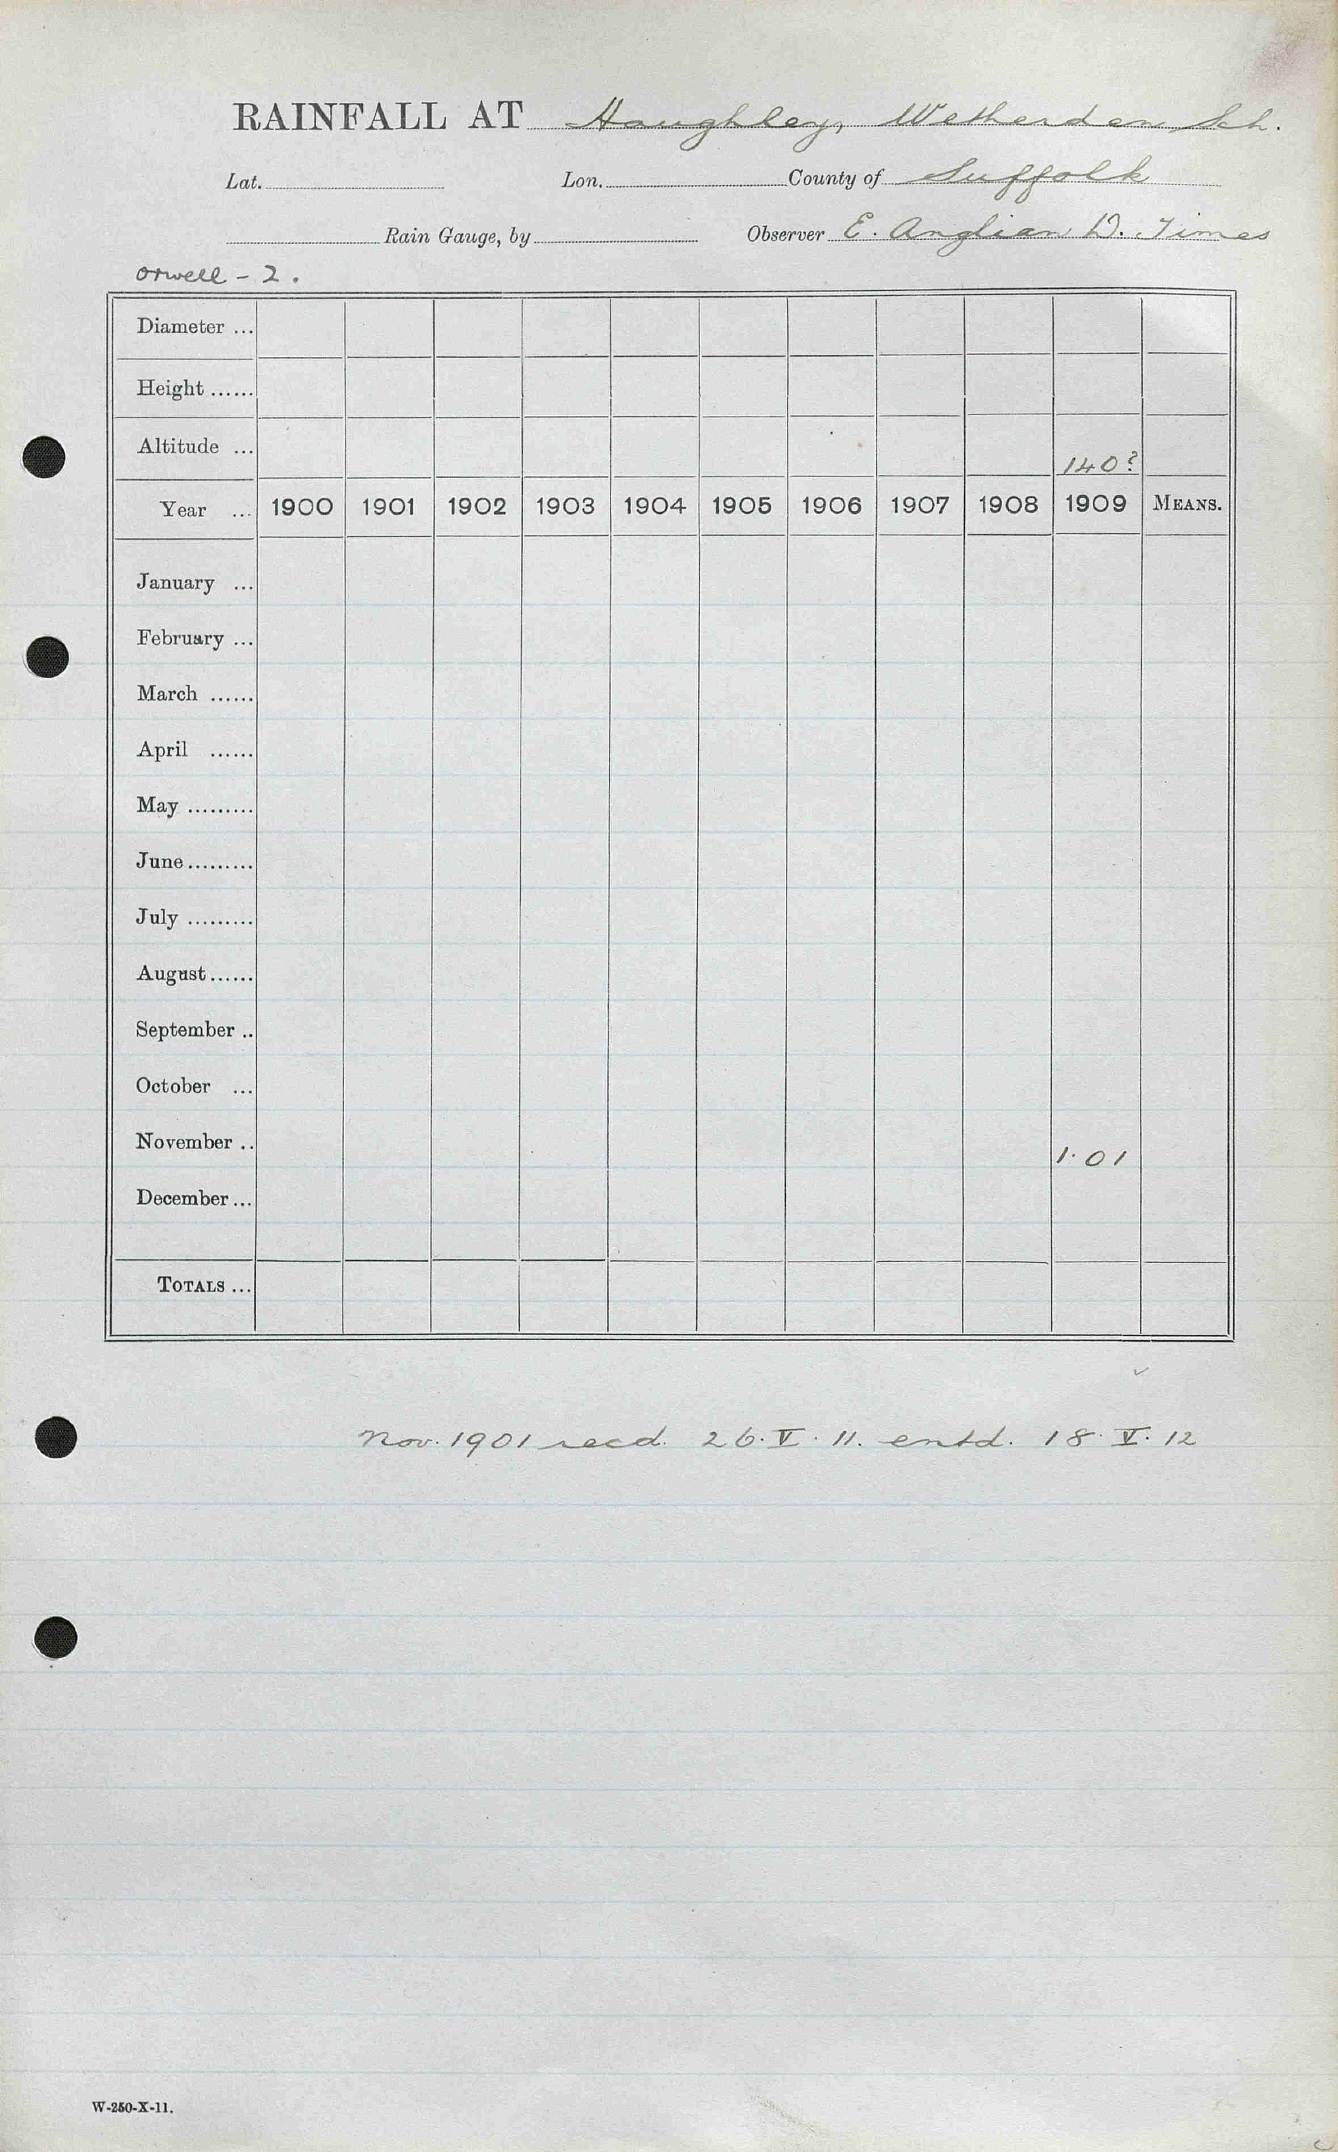 RAINFALL AT Haughley, Wetherden Sch.
Lat. Lon. County of Suffolk
Rain Gauge, by Observer E. Anglian D. Times
Orwell - 2.
Diameter ...
Height ......
Altitude ... 140?
Year ... 1900 1901 1902 1903 1904 1905 1906 1907 1908 1909 MEANS.
January ...
February ...
March ......
April ......
May .........
June .........
July .........
August ......
September ..
October ...
November .. 1.01
December ...
TOTALS ...
Nov. 1901 recd. 26.V.11. entd. 18.V.12
W-250-X-11.